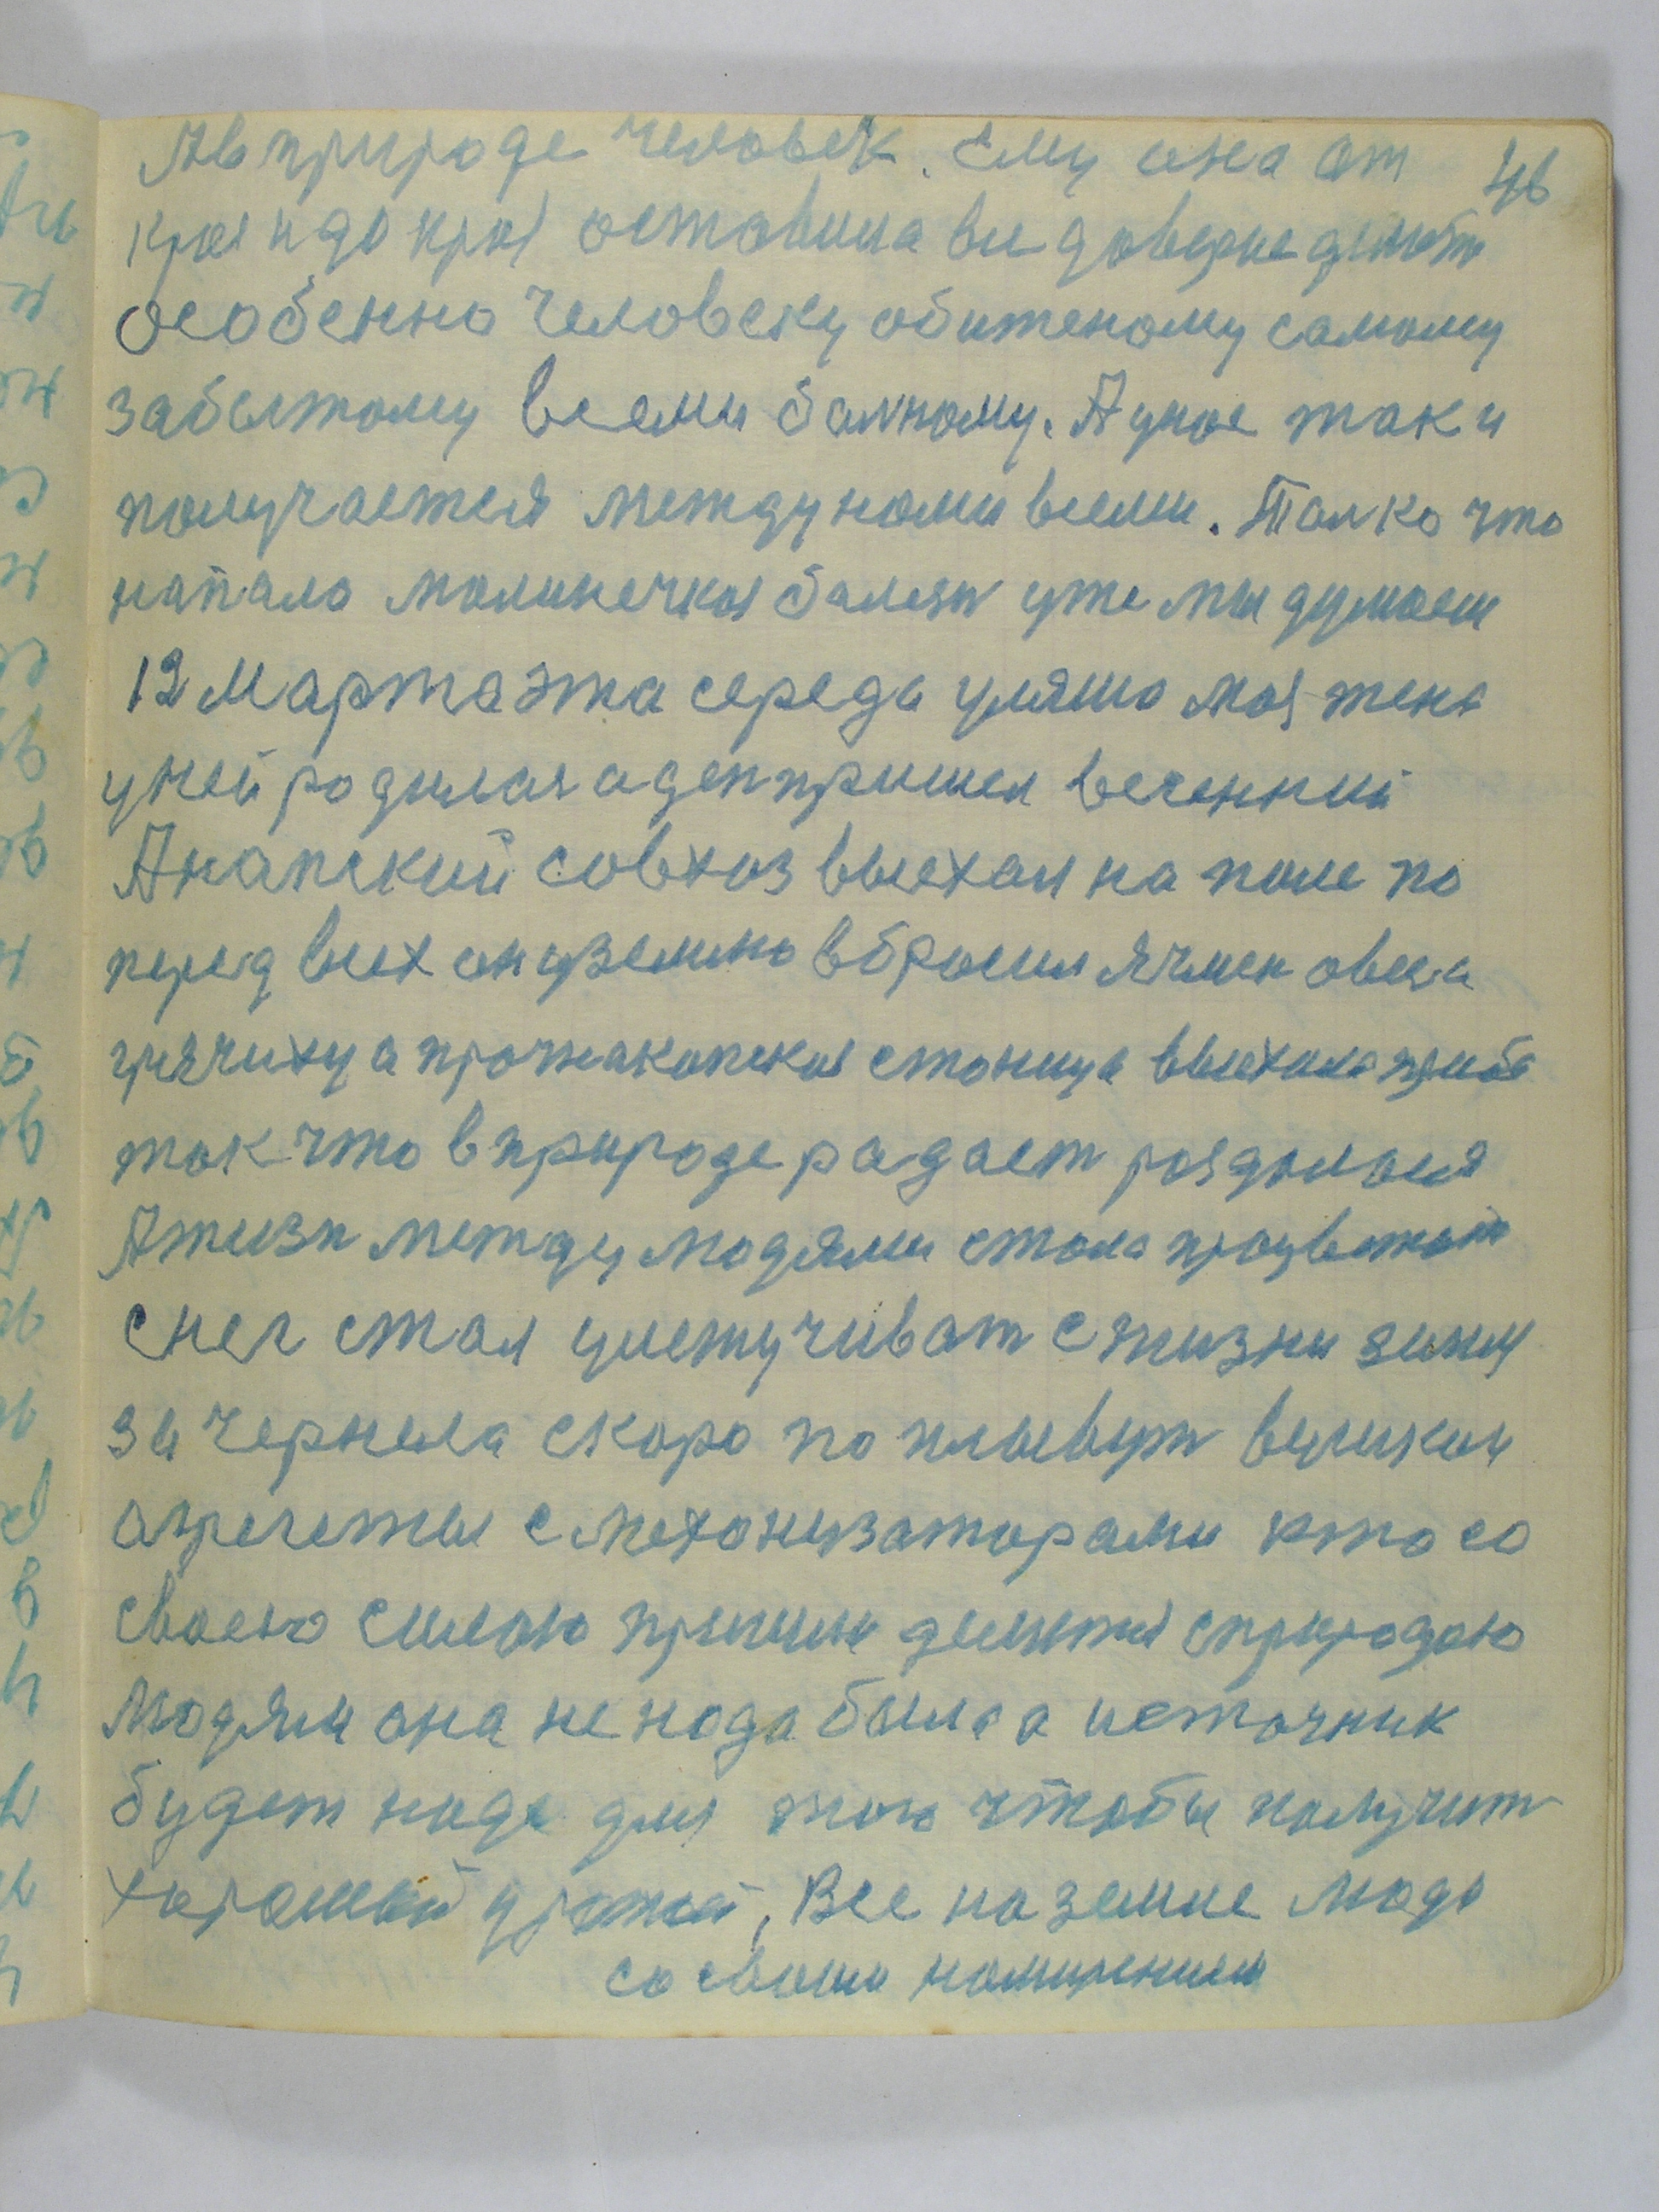 Ав природе человек. Ему она от 46
края и до края оставила все доверие делать
особенно человеку обитеному самому
забытому всеми балному. А унас так и
получается между нами всеми. Толко что
напала малинечкая балезн уже мы думаем
12 марта эта середа умяшо моя жена
уней родилася аден пришел весенний
Анапский совхоз выехал на поле по
перед всех он уземлю вбросил ячмен овса
гречиху а прочнакопская станица выехала
так что в природе радает раздылася
Ажизн между людями стала процветат
снег стал улетучиват с жизни зиму
за чернела скоро по плывут великаи
агрегеты с механизаторами кто со
своею силою пришли делится с природою
людям она не нада была а источник
будет надо для того чтобы получит
харошей урожай, Все на земле люди
со своим намирением